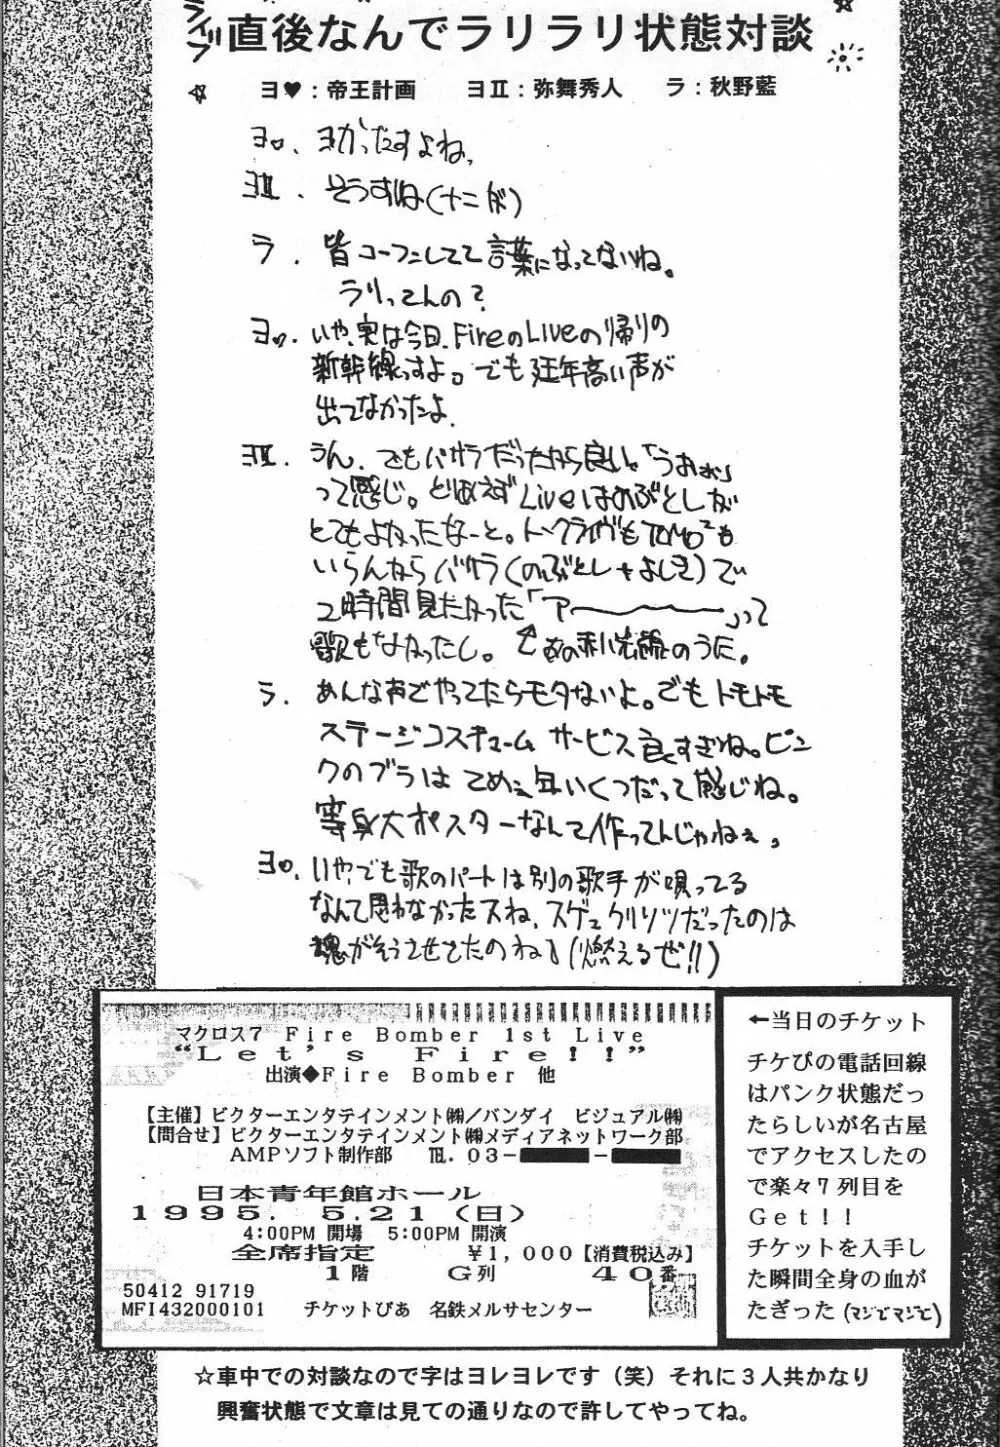 ライブ直後なんでラリラリ状態対談
ヨ♥:帝王計画　ヨII:弥舞秀人　ラ:秋野藍
そうすね(ナニが)
ラ. 皆コーフンしてて言葉になってないね。
ラリってんの?
いや、実は今日、FireのLiveの帰りの
新幹線っすよ。でも延年高い声が
出てなかったよ.
ヨII. うん、でもバサラだったから良い。「うおぉ」
って感じ。とりあえずLiveはのぶとしが
とてもよかったなーと。トークライヴもTOMO²も
いらんからバサラ(のぶとし+よしき)で
2時間見たかった「アーーーー」って
歌もなかったし。
ラ. あんな声でやってたらモタないよ。でもトモトモ
ステージコスチューム サービス良すぎね。ピン
クのブラは てめぇ年いくつだって感じね。
等身大ポスターなんて作ってんじゃねぇ。
いや、でも歌のパートは別の歌手が唄ってる
なんて思わなかったスね、スゲェクリソツだったのは
魂がそうさせてたのね(燃えるぜ!!)
マクロス7 Fire Bomber 1st Live
“Let's Fire!!”
出演◆Fire Bomber 他
【主催】ビクターエンタテインメント㈱/バンダイ ビジュアル㈱
【問合せ】ビクターエンタテインメント㈱メディアネットワーク部
AMPソフト制作部　℡. 03-　-
日本青年館ホール
1995. 5.21 (日)
4:00PM 開場　5:00PM 開演
全席指定　¥1,000【消費税込み】
1階　G列　40番
50412 91719
MFI432000101　チケットぴあ 名鉄メルサセンター
←当日のチケット
チケぴの電話回線
はパンク状態だっ
たらしいが名古屋
でアクセスしたの
で楽々7列目を
Get!!
チケットを入手し
た瞬間全身の血が
たぎった(マジでマジで)
☆車中での対談なので字はヨレヨレです(笑)それに3人共かなり
興奮状態で文章は見ての通りなので許してやってね。